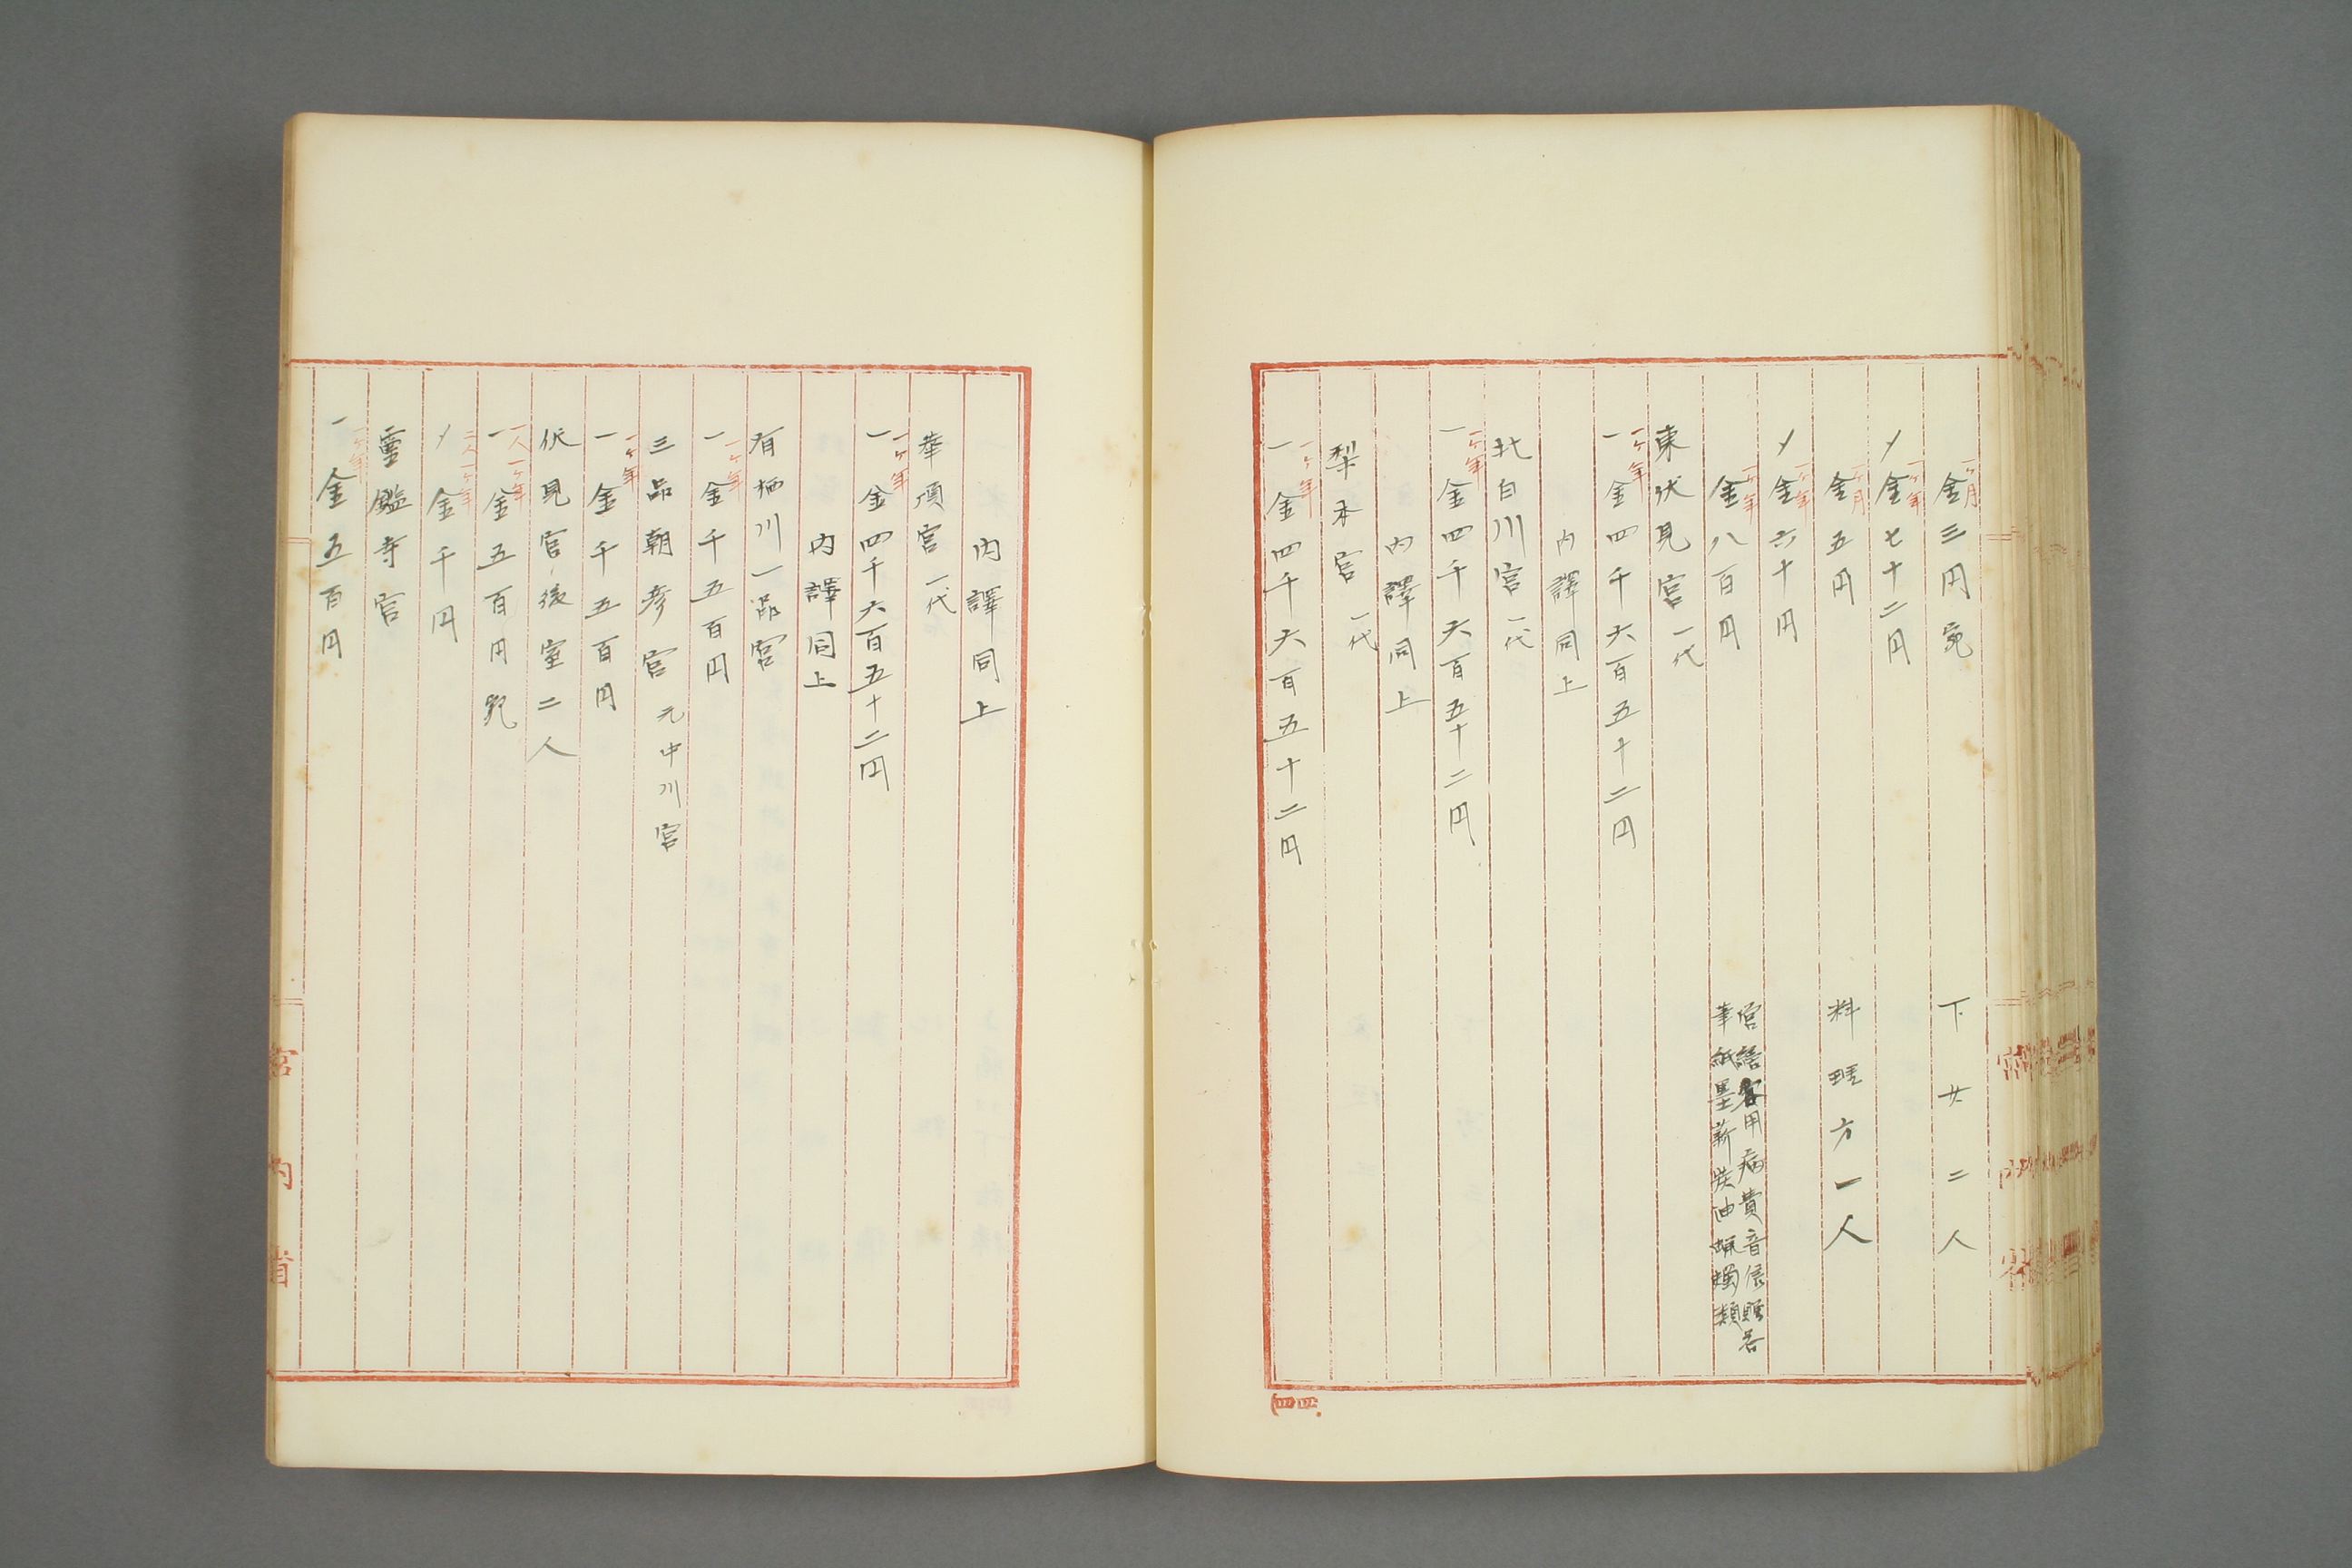 一ヶ月
金三円宛 下女二人
一ヶ年
〆金七十二円
一ヶ月
金五円 料理方一人
一ヶ年
〆金六十円
一ヶ年
金八百円 宮諸客用病費音信贈答
筆紙墨薪炭油蝋燭類
東伏見宮 一代
一ヶ年
一金四千六百五十二円
内譯同上
北白川宮 一代
一ヶ年
一金四千六百五十二円
内譯同上
梨本宮 一代
一ヶ年
一金四千六百五十二円
内譯同上
華頂宮 一代
一ヶ年
一金四千六百五十二円
内譯同上
有栖川一品宮
一ヶ年
一金千五百円
三品朝彦宮 元中川宮
一ヶ年
一金千五百円
伏見宮後室二人
一人一ヶ年
一金五百円宛
二人一ヶ年
〆金千円
霊鑑寺宮
一ヶ年
一金五百円
宮内省